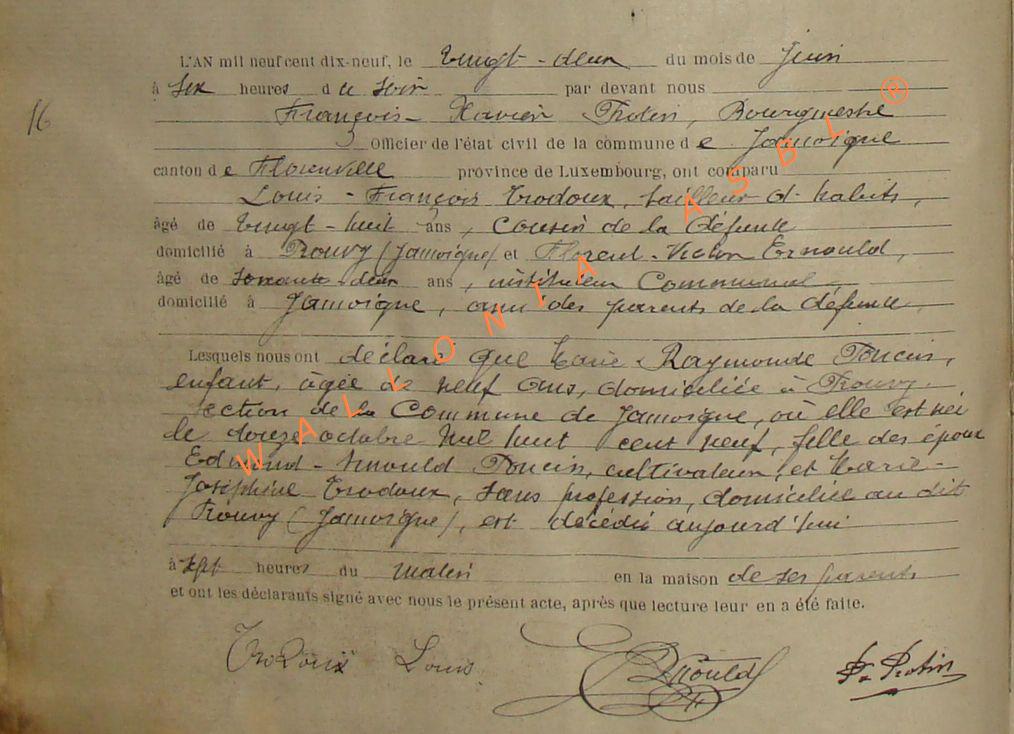 16
L'AN mil neuf cent dix-neuf, le vingt-deux du mois de Juin
à six heures du soir par devant nous
François-Xavier Protin, Bourgmestre
Officier de l'état civil de la commune de Jamoigne
canton de Florenville province de Luxembourg, ont comparu
Louis-François Trodoux, tailleur d'habits,
âgé de vingt-huit ans, cousin de la défunte
domicilié à Prouvy (Jamoigne) et Florent-Victor Ernould,
âgé de soixante deux ans, instituteur Communal,
domicilié à Jamoigne, ami des parents de la défunte
Lesquels nous ont déclaré que Marie Raymonde Poncin,
enfant, âgée de neuf ans, domiciliée à Prouvy,
section de la Commune de Jamoigne, où elle est née
le douze octobre mil huit cent neuf, fille des époux
Edmond-Arnould Poncin, cultivateur, et Marie-
Joséphine Trodoux, sans profession, domiciliée au dit
Prouvy (Jamoigne), est décédée aujourd'hui
à sept heures du matin en la maison de ses parents
et ont les déclarants signé avec nous le présent acte, après que lecture leur en a été faite.
Trodoux Louis Ernould Protin
WALLONIA ASBL ®